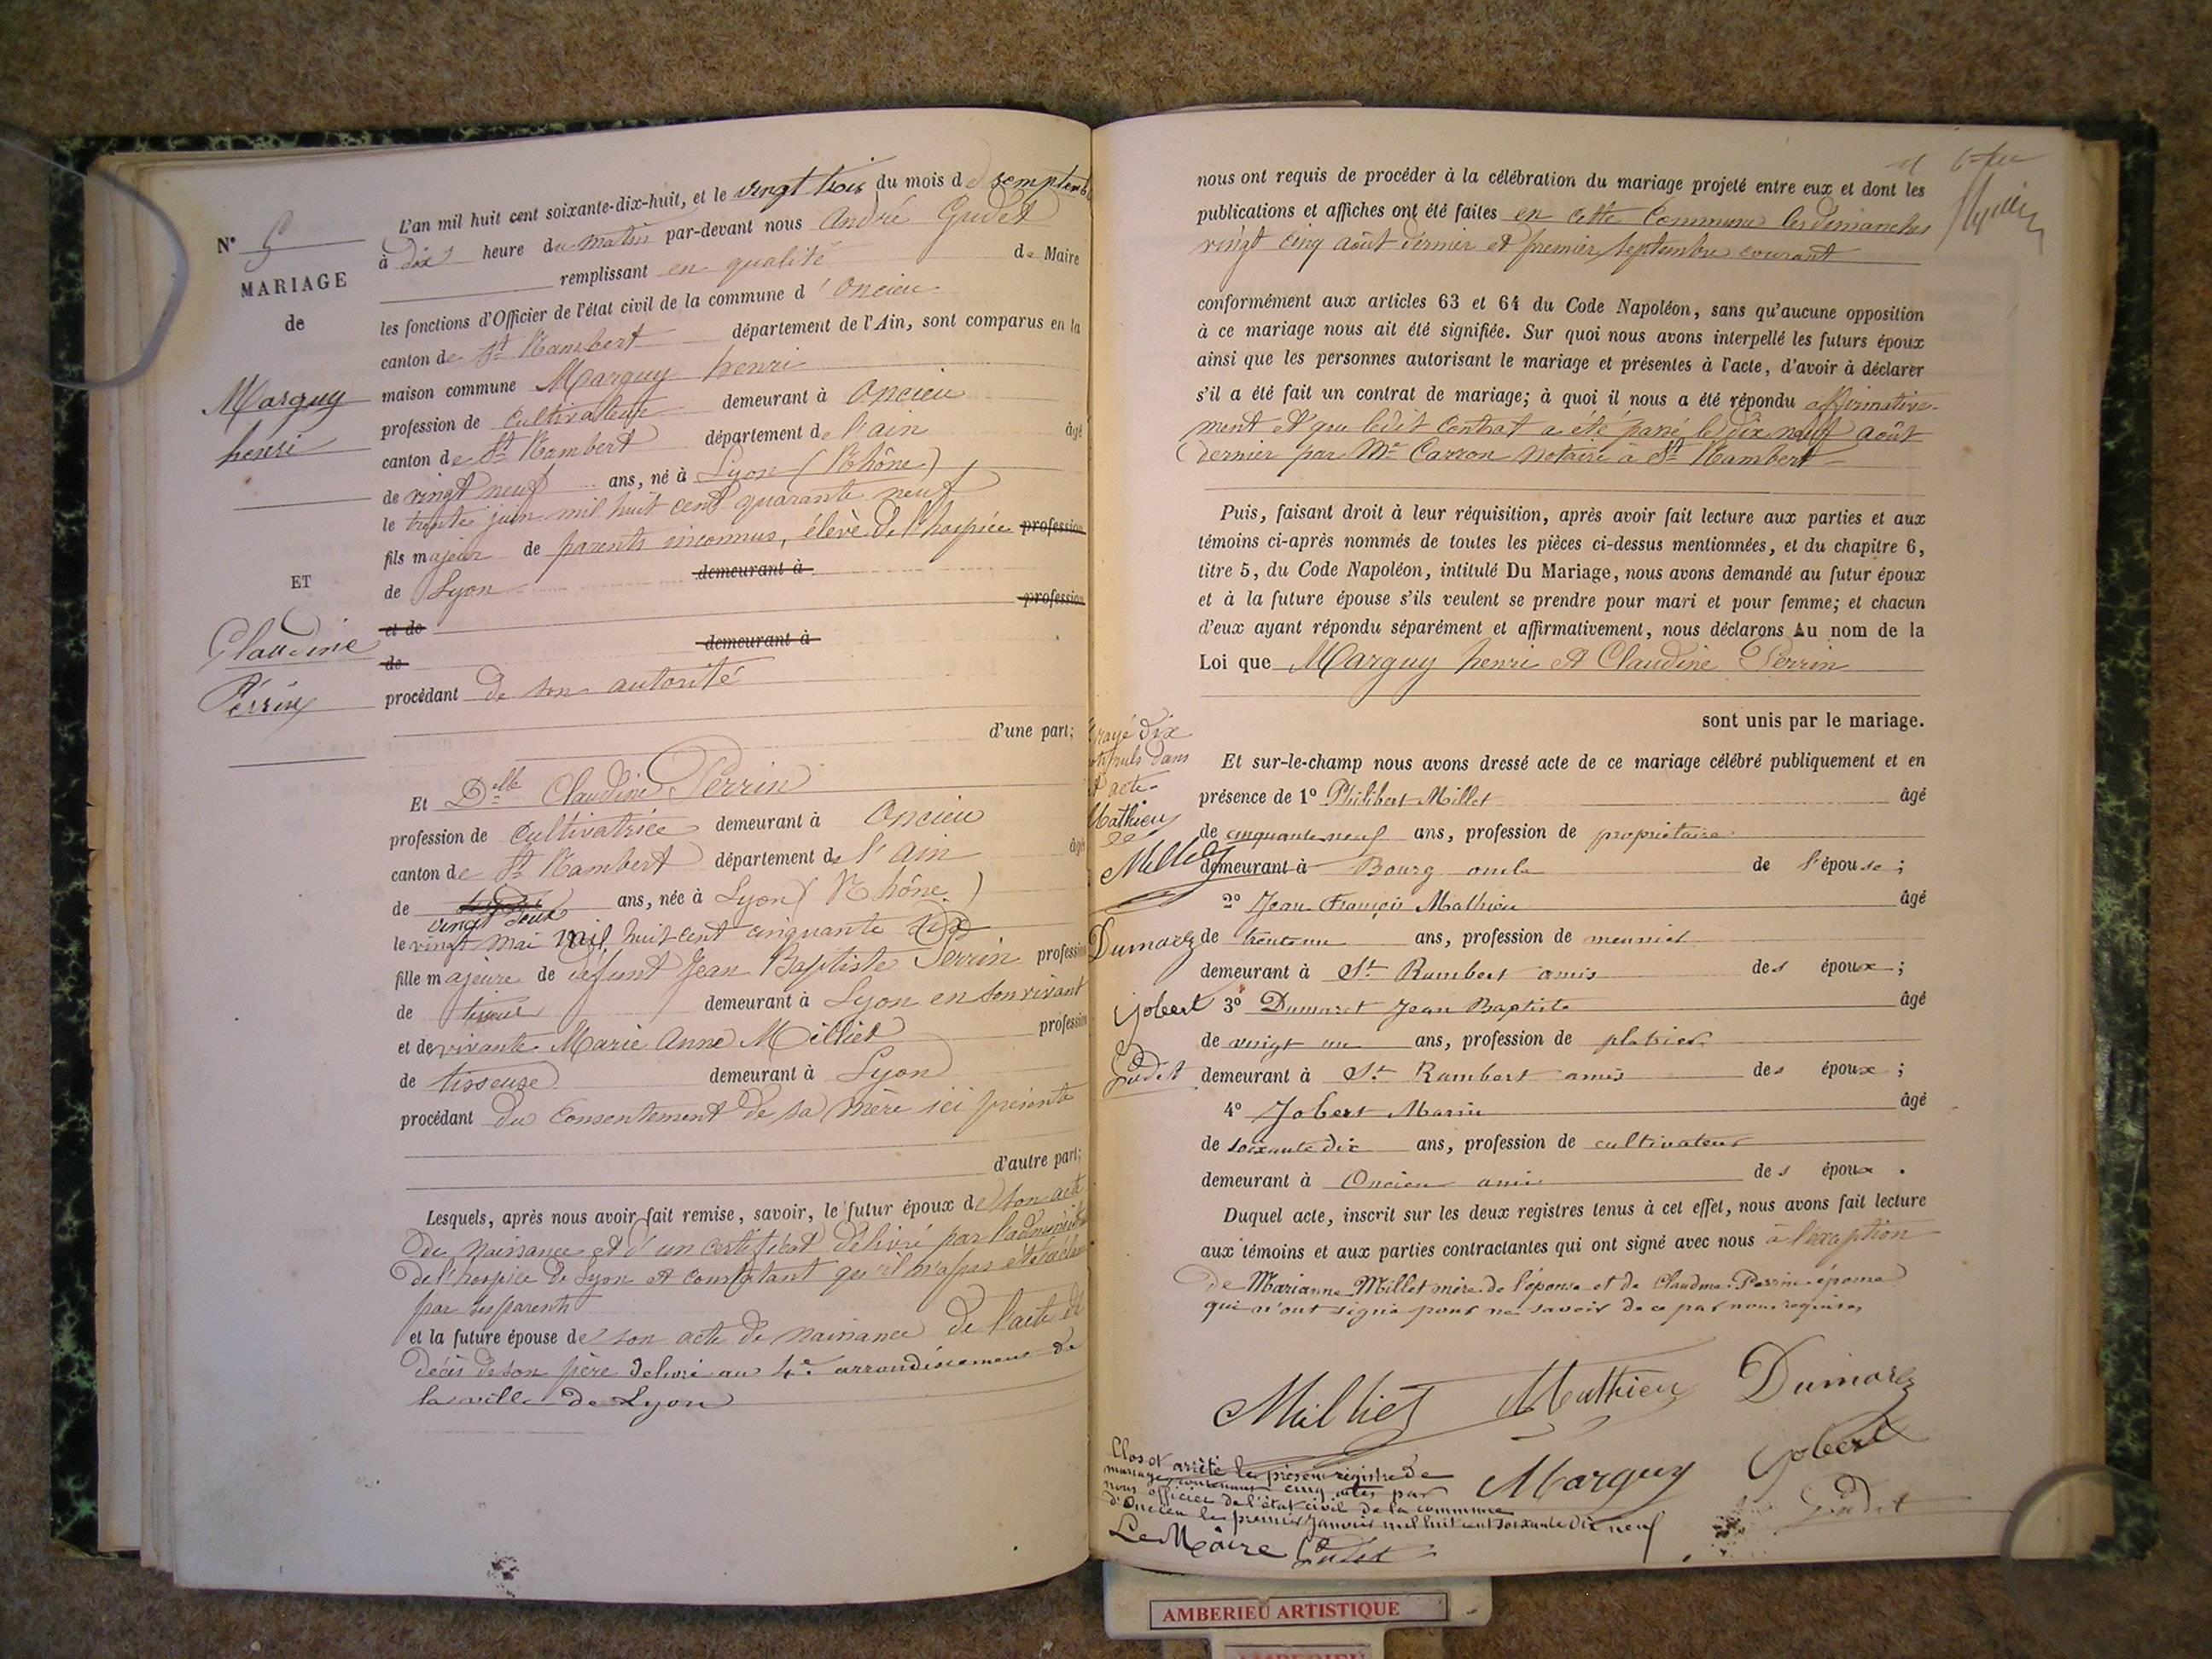 N° 5
MARIAGE
de
Marguy
henri
ET
Claudine
Perrin
L'an mil huit cent soixante-dix-huit, et le vingt trois du mois de semptemb
à dix heure du matin par-devant nous André Gudet
remplissant en qualité de Maire
les fonctions d'Officier de l'état civil de la commune d'Oncieu
canton de St Rambert département de l'Ain, sont comparus en la
maison commune Marguy henri
profession de cultivateur demeurant à Oncieu
canton de St Rambert département de l'ain âgé
de vingt neuf ans, né à Lyon (Rhône)
le trente juin mil huit cent quarante neuf
fils majeur de parents inconnus, élève de l'hospice profession
de Lyon demeurant à
et de profession
de demeurant à
procédant de son autorité
d'une part;
Et Delle Claudine Perrin
profession de cultivatrice demeurant à Oncieu
canton de St Rambert département de l'ain âgé
de vingt deux ans, née à Lyon (Rhône)
le vingt mai mil huit cent cinquante six
fille majeure de défunt Jean Baptiste Perrin profession
de tisseur demeurant à Lyon en son vivant
et de vivante Marie Anne Milliet profession
de tisseuse demeurant à Lyon
procédant du consentement de sa mère ici présente
d'autre part;
Lesquels, après nous avoir fait remise, savoir, le futur époux de son acte
de naissance et d'un certificat délivré par l'administ
de l'hospice de Lyon et constatant qu'il n'a pas été réclam
par ses parents
et la future épouse de son acte de naissance de l'acte de
décès de son père délivré au 4e arrondissement de
la ville de Lyon
nous ont requis de procéder à la célébration du mariage projeté entre eux et dont les
publications et affiches ont été faites en cette Commune les dimanches
vingt cinq août dernier et premier septembre courant
conformément aux articles 63 et 64 du Code Napoléon, sans qu'aucune opposition
à ce mariage nous ait été signifiée. Sur quoi nous avons interpellé les futurs époux
ainsi que les personnes autorisant le mariage et présentes à l'acte, d'avoir à déclarer
s'il a été fait un contrat de mariage; à quoi il nous a été répondu affirmative-
ment et que ledit Contrat a été passé le dix neuf août
dernier par Me Carron Notaire à St Rambert
Puis, faisant droit à leur réquisition, après avoir fait lecture aux parties et aux
témoins ci-après nommés de toutes les pièces ci-dessus mentionnées, et du chapitre 6,
titre 5, du Code Napoléon, intitulé Du Mariage, nous avons demandé au futur époux
et à la future épouse s'ils veulent se prendre pour mari et pour femme; et chacun
d'eux ayant répondu séparément et affirmativement, nous déclarons Au nom de la
Loi que Marguy henri et Claudine Perrin
sont unis par le mariage.
Et sur-le-champ nous avons dressé acte de ce mariage célébré publiquement et en
présence de 1° Philibert Millet âgé
de cinquante neuf ans, profession de propriétaire
demeurant à Bourg oncle de l'épouse;
2° Jean François Mathieu âgé
de trente un ans, profession de meunier
demeurant à St Rambert amis des époux;
3° Dumaret Jean Baptiste âgé
de vingt un ans, profession de platrier
demeurant à St Rambert amis des époux;
4° Jobert Marin âgé
de soixante dix ans, profession de cultivateur
demeurant à Oncieu amis des époux.
Duquel acte, inscrit sur les deux registres tenus à cet effet, nous avons fait lecture
aux témoins et aux parties contractantes qui ont signé avec nous à l'exeption
de Marianne Millet mère de l'épouse et de Claudine Perrin épouse
qui n'ont signé pour ne savoir de ce par nous requises
rayé dix
dans
acte
Mathieu
Milliet
Dumarez
Jobert
Gudet
Milliet Mathieu Dumarez
Marguy Jobert
Gudet
Clos et arrêté le présent registre de
mariage contenant cinq actes par
nous officier de l'état civil de la commune
d'Oncieu le premier Janvier mil huit cent soixante dix neuf
Le Maire Gudet
AMBERIEU ARTISTIQUE
AMBERIEU